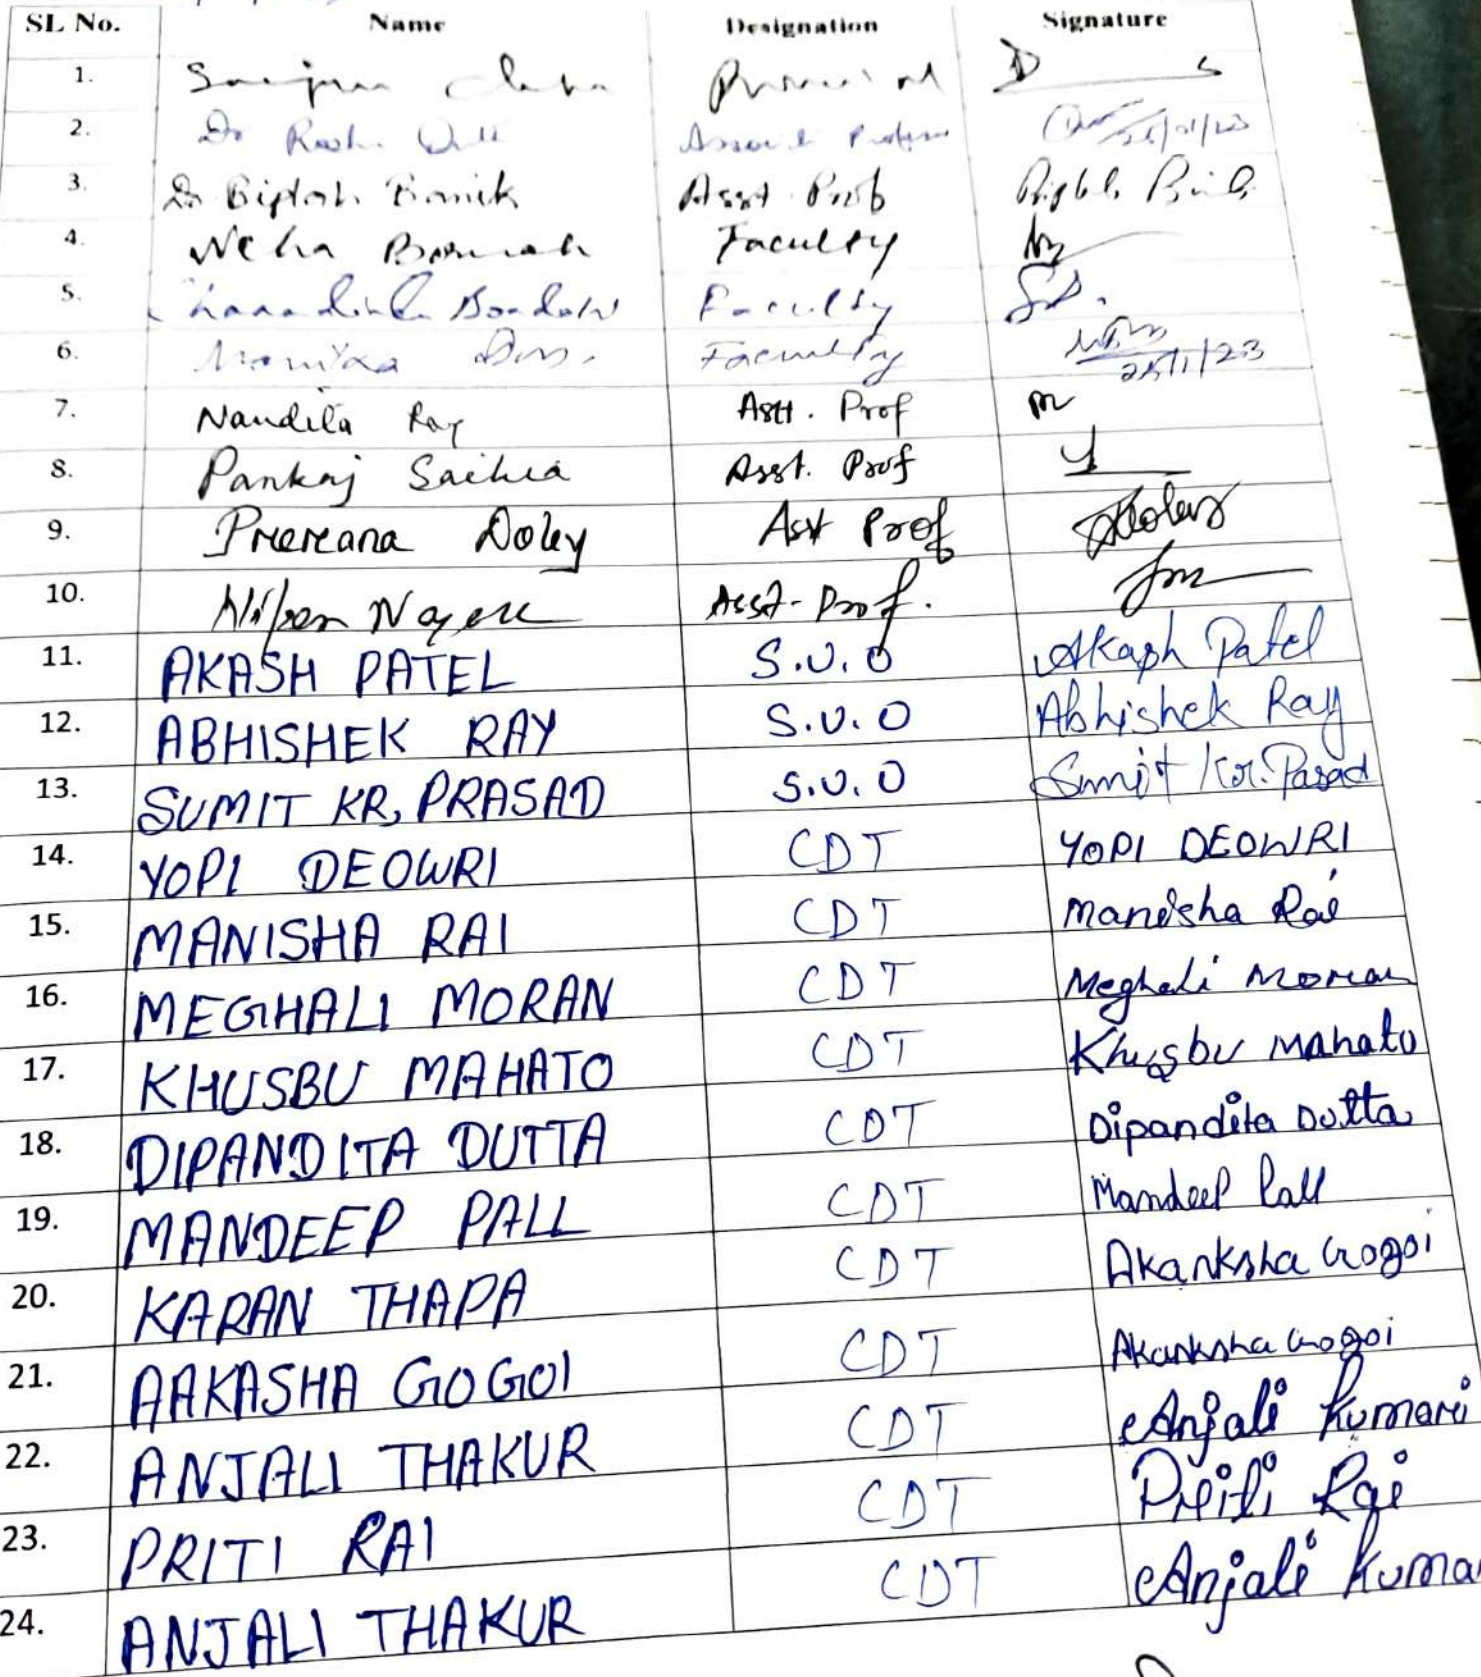 SL No. Name Designation Signature
1.
2. Dr
3. Dr Biplab Banik Asst. Prof
4. Neha Faculty
5. Faculty
6. Monika Das. Faculty 25/1/23
7. Nandita Ray Astt. Prof
8. Pankaj Saikia Asst. Prof
9. Prerana Doley Ast Prof
10. Asst-Prof.
11. AKASH PATEL S.U.O Akash Patel
12. ABHISHEK RAY S.U.O Abhishek Ray
13. SUMIT KR, PRASAD S.U.O Sumit Kr. Pasad
14. YOPI DEOWRI CDT YOPI DEOWRI
15. MANISHA RAI CDT Manisha Rai
16. MEGHALI MORAN CDT Meghali Moran
17. KHUSBU MAHATO CDT Khusbu Mahato
18. DIPANDITA DUTTA CDT Dipandita Dutta
19. MANDEEP PALL CDT Mandeep Pall
20. KARAN THAPA CDT Akanksha Gogoi
21. AAKASHA GOGOI CDT Akanksha Gogoi
22. ANJALI THAKUR CDT Anjali Kumari
23. PRITI RAI CDT Priti Rai
24. ANJALI THAKUR CDT Anjali